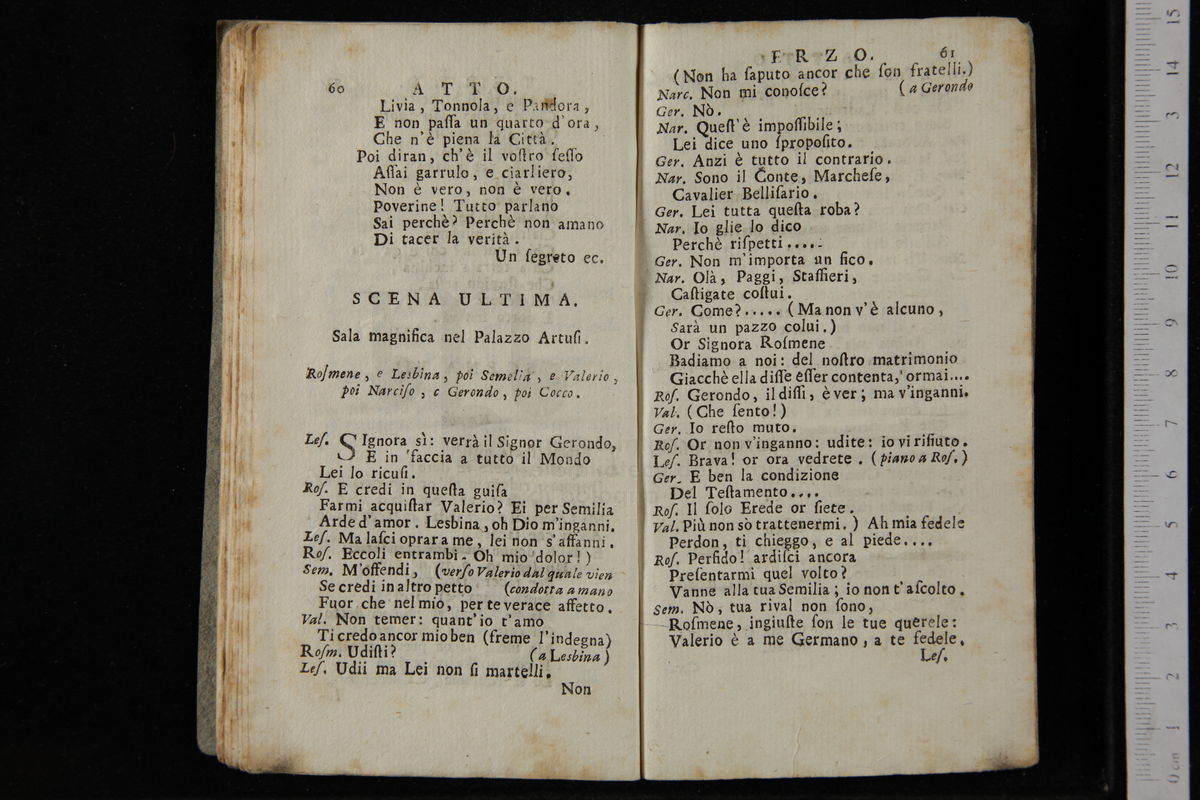 60 ATTO.
Livia, Tonnola, e Pandora,
E non paſſa un quarto d'ora,
Che n'è piena la Città.
Poi diran, ch'è il voſtro ſeſſo
Aſſai garrulo, e ciarliero,
Non è vero, non è vero.
Poverine! Tutto parlano
Sai perchè? Perchè non amano
Di tacer la verità.
Un ſegreto ec.
SCENA ULTIMA.
Sala magnifica nel Palazzo Artuſi.
Roſmene, e Lesbina, poi Semelia, e Valerio,
poi Narciſo, e Gerondo, poi Cocco.
Leſ. SIgnora sì: verrà il Signor Gerondo,
E in 'faccia a tutto il Mondo
Lei lo ricuſi.
Roſ. E credi in queſta guiſa
Farmi acquiſtar Valerio? Ei per Semilia
Arde d'amor. Lesbina, oh Dio m'inganni.
Leſ. Ma laſci oprar a me, lei non s'affanni.
Roſ. Eccoli entrambi. Oh mio dolor!)
Sem. M'offendi, (verſo Valerio dal quale vien
Se credi in altro petto (condotta a mano
Fuor che nel mio, per te verace affetto.
Val. Non temer: quant'io t'amo
Ti credo ancor mio ben (freme l'indegna)
Roſm. Udiſti? (a Lesbina)
Leſ. Udii ma Lei non ſi martelli.
Non
ERZO. 61
(Non ha ſaputo ancor che ſon fratelli.)
Narc. Non mi conoſce? (a Gerondo
Ger. Nò.
Nar. Queſt'è impoſſibile;
Lei dice uno ſpropoſito.
Ger. Anzi è tutto il contrario.
Nar. Sono il Conte, Marcheſe,
Cavalier Belliſario.
Ger. Lei tutta queſta roba?
Nar. Io glie lo dico
Perchè riſpetti.....
Ger. Non m'importa un fico.
Nar. Olà, Paggi, Staffieri,
Caſtigate coſtui.
Ger. Come?..... (Ma non v'è alcuno,
Sarà un pazzo colui.)
Or Signora Roſmene
Badiamo a noi: del noſtro matrimonio
Giacchè ella diſſe eſſer contenta, ormai....
Roſ. Gerondo, il diſſi, è ver; ma v'inganni.
Val. (Che ſento!)
Ger. Io reſto muto.
Roſ. Or non v'inganno: udite: io vi rifiuto.
Leſ. Brava! or ora vedrete. (piano a Roſ.)
Ger. E ben la condizione
Del Teſtamento....
Roſ. Il ſolo Erede or ſiete.
Val. Più non sò trattenermi.) Ah mia fedele
Perdon, ti chieggo, e al piede....
Roſ. Perfido! ardiſci ancora
Preſentarmi quel volto?
Vanne alla tua Semilia; io non t'aſcolto.
Sem. Nò, tua rival non ſono,
Roſmene, ingiuſte ſon le tue querele:
Valerio è a me Germano, a te fedele.
Leſ.
15
14
13
12
11
10
9
8
7
6
5
4
3
2
1
0 cm